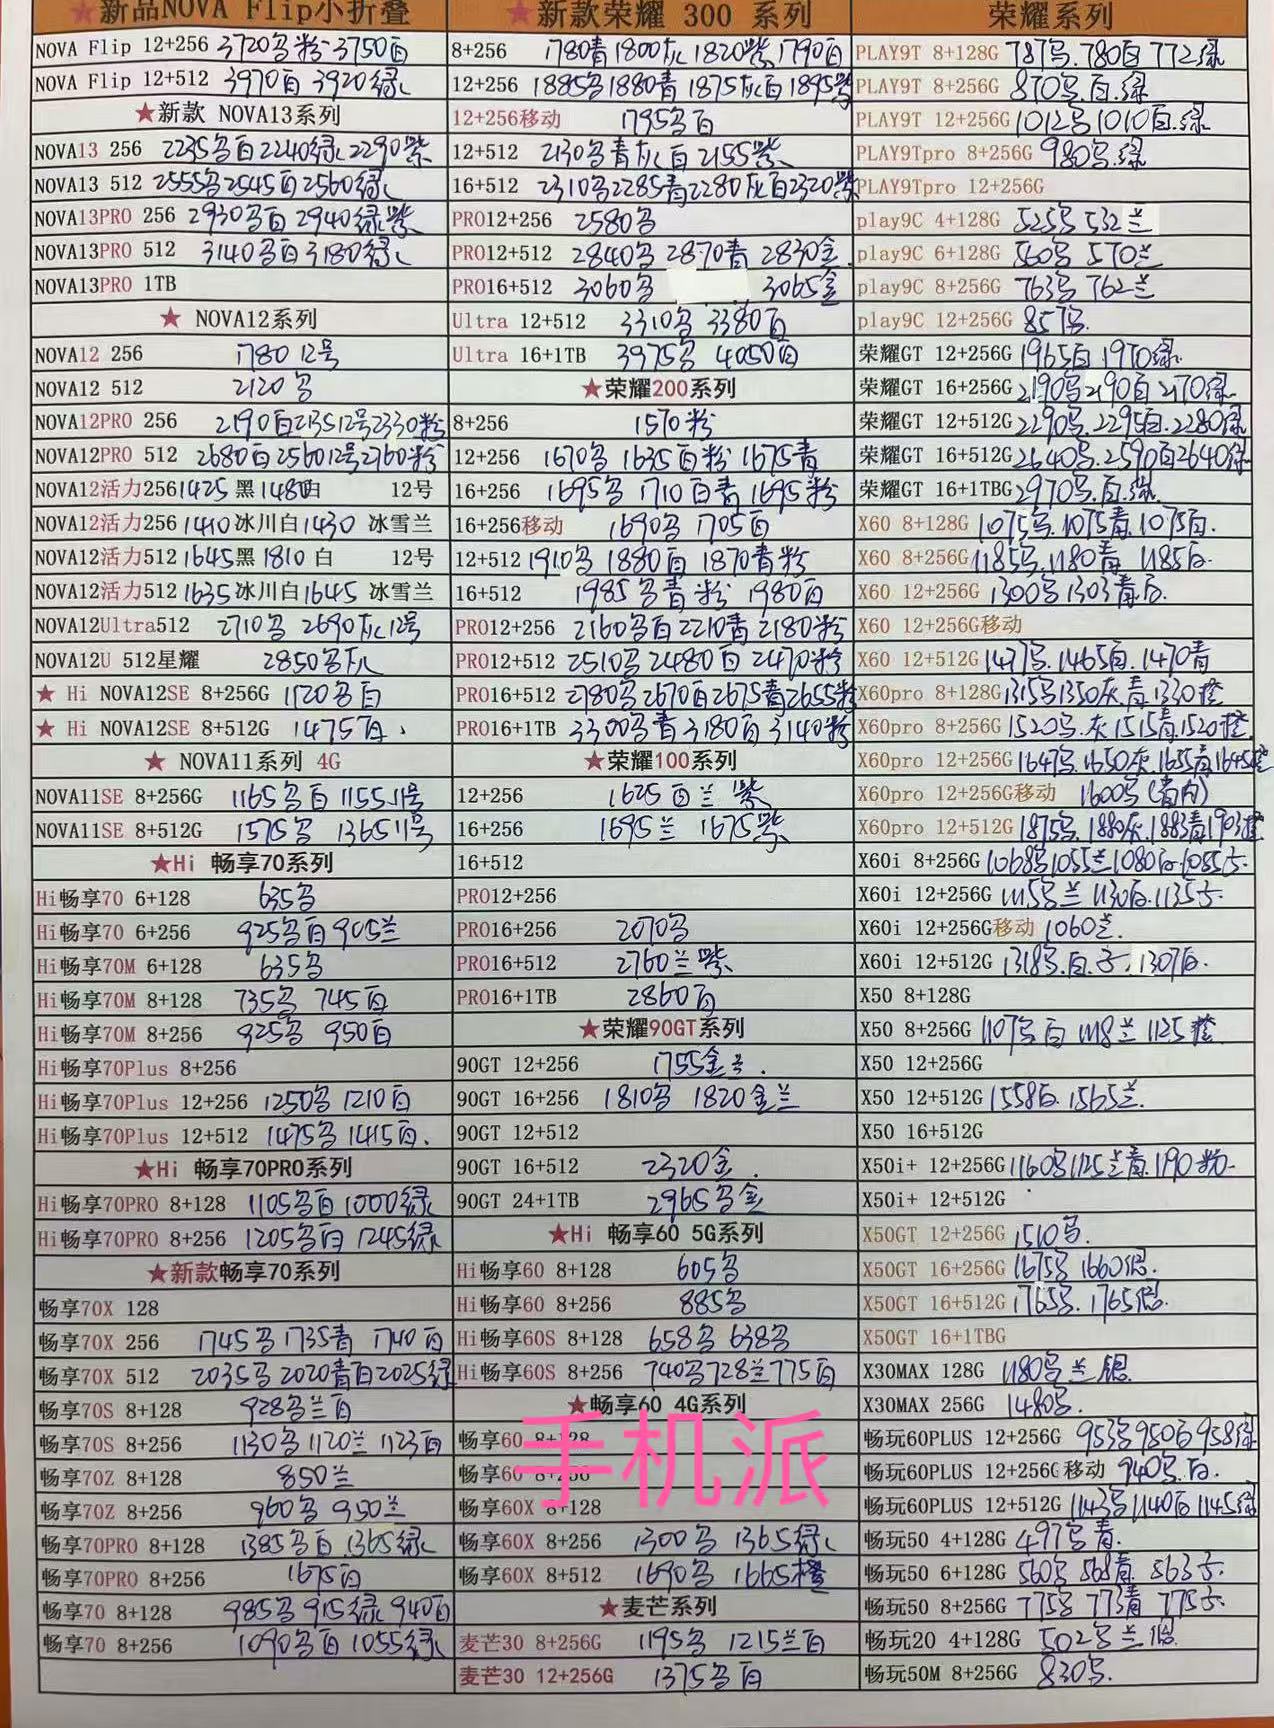 ★新品NOVA Flip小折叠
NOVA Flip 12+256 3720 粉3750白
NOVA Flip 12+512 3970白 3920绿
★新款 NOVA13系列
NOVA13 256 2235 白2240绿2290紫
NOVA13 512 2555 2545白2560绿
NOVA13PRO 256 2930 白2940绿紫
NOVA13PRO 512 3140 白3180绿
NOVA13PRO 1TB
★ NOVA12系列
NOVA12 256 1780 12号
NOVA12 512 2120
NOVA12PRO 256 2190白223512号2330粉
NOVA12PRO 512 2680白256012号2760粉
NOVA12活力256 1425黑1480白 12号
NOVA12活力256 1410冰川白1430 冰雪兰
NOVA12活力512 1645黑1810白 12号
NOVA12活力512 1635冰川白1645 冰雪兰
NOVA12Ultra512 2710 2690灰12号
NOVA12U 512星耀 2850 灰
★ Hi NOVA12SE 8+256G 1120 白
★ Hi NOVA12SE 8+512G 1475白
★ NOVA11系列 4G
NOVA11SE 8+256G 1165 白1155 11号
NOVA11SE 8+512G 1575 1365 11号
★Hi 畅享70系列
Hi畅享70 6+128 635
Hi畅享70 6+256 925 白905兰
Hi畅享70M 6+128 635
Hi畅享70M 8+128 735 745白
Hi畅享70M 8+256 925 950白
Hi畅享70Plus 8+256
Hi畅享70Plus 12+256 1250 1210白
Hi畅享70Plus 12+512 1475 1415白
★Hi 畅享70PRO系列
Hi畅享70PRO 8+128 1105 白1000绿
Hi畅享70PRO 8+256 1205 白1245绿
★新款畅享70系列
畅享70X 128
畅享70X 256 1745 1735青 1740白
畅享70X 512 2035 2020青白2025绿
畅享70S 8+128 928 兰白
畅享70S 8+256 1130 1120兰 1123白
畅享70Z 8+128 850兰
畅享70Z 8+256 960 950兰
畅享70PRO 8+128 1385 白1365绿
畅享70PRO 8+256 1675白
畅享70 8+128 985 915绿940白
畅享70 8+256 1090 白1055绿
★新款荣耀 300 系列
8+256 1780青1800灰1820紫1790白
12+256 1885 1880青1875灰白1895紫
12+256移动 1795 白
12+512 2130 青灰白2155紫
16+512 2310 2285青2280灰白2320紫
PRO12+256 2580
PRO12+512 2840 2870青2830金
PRO16+512 3060 3065金
Ultra 12+512 3310 3380白
Ultra 16+1TB 3975 4050白
★荣耀200系列
8+256 1570粉
12+256 1670 1635白粉1675青
16+256 1695 1710白青1695粉
16+256移动 1690 1705白
12+512 1910 1880白1870青粉
16+512 1985 青粉1980白
PRO12+256 2160 白2210青2180粉
PRO12+512 2510 2480白2470粉
PRO16+512 2780 2670白2675青2655粉
PRO16+1TB 3300 青3180白3140粉
★荣耀100系列
12+256 1625白兰紫
16+256 1695兰 1675紫
16+512
PRO12+256
PRO16+256 2070
PRO16+512 2760兰紫
PRO16+1TB 2860白
★荣耀90GT系列
90GT 12+256 1755金兰
90GT 16+256 1810 1820金兰
90GT 12+512
90GT 16+512 2320金
90GT 24+1TB 2965 金
★Hi 畅享60 5G系列
Hi畅享60 8+128 605
Hi畅享60 8+256 885
Hi畅享60S 8+128 658 638
Hi畅享60S 8+256 740 728兰775白
★畅享60 4G系列
畅享60 8+128
畅享60 8+256
畅享60X 8+128
畅享60X 8+256 1300 1365绿
畅享60X 8+512 1690 1665橙
★麦芒系列
麦芒30 8+256G 1195 1215兰白
麦芒30 12+256G 1375 白
荣耀系列
PLAY9T 8+128G 787 780白772绿
PLAY9T 8+256G 870 白绿
PLAY9T 12+256G 1012 1010白绿
PLAY9Tpro 8+256G 980 绿
PLAY9Tpro 12+256G
play9C 4+128G 525 532兰
play9C 6+128G 560 570兰
play9C 8+256G 763 762兰
play9C 12+256G 857
荣耀GT 12+256G 1965白1970绿
荣耀GT 16+256G 2190 2190白2170绿
荣耀GT 12+512G 2290 2295白2280绿
荣耀GT 16+512G 2640 2590白2640绿
荣耀GT 16+1TBG 2970 白绿
X60 8+128G 1075 1075青1075白
X60 8+256G 1185 1180青1185白
X60 12+256G 1300 1303青白
X60 12+256G移动
X60 12+512G 1477 1465白1470青
X60pro 8+128G 1315 1350灰青1330橙
X60pro 8+256G 1520 灰1515青1520橙
X60pro 12+256G 1647 1650灰1655青1645橙
X60pro 12+256G移动 1600
X60pro 12+512G 1875 1880灰1883青1903橙
X60i 8+256G 1068 1055兰1080白1055
X60i 12+256G 1115 兰1130白1135
X60i 12+256G移动 1060兰
X60i 12+512G 1318 白 1307白
X50 8+128G
X50 8+256G 1107 白1118兰1125橙
X50 12+256G
X50 12+512G 1558白1565兰
X50 16+512G
X50i+ 12+256G 1160 1125兰青1190粉
X50i+ 12+512G
X50GT 12+256G 1510
X50GT 16+256G 1675 1660银
X50GT 16+512G 1765 1765银
X50GT 16+1TBG
X30MAX 128G 1180 兰银
X30MAX 256G 1480
畅玩60PLUS 12+256G 953 950白958绿
畅玩60PLUS 12+256G移动 940 白
畅玩60PLUS 12+512G 1143 1140白1145绿
畅玩50 4+128G 497 青
畅玩50 6+128G 560 568青563
畅玩50 8+256G 775 773青775
畅玩20 4+128G 502 兰银
畅玩50M 8+256G 830
手机派